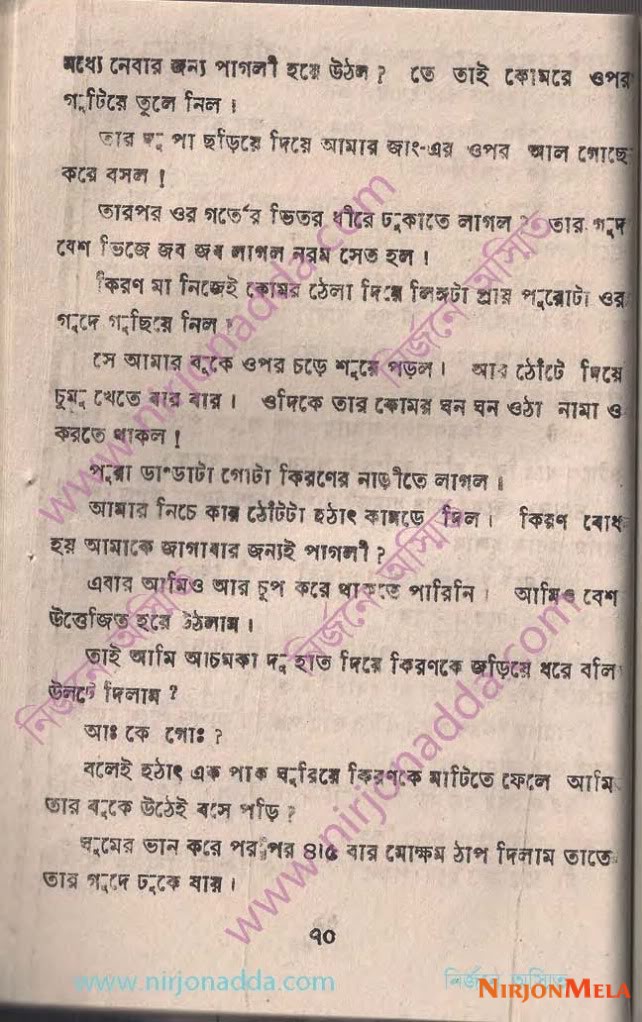 মধ্যে নেবার জন্য পাগলী হয়ে উঠল ? তে তাই কোমরে ওপর
গুটিয়ে তুলে নিল ।
তার দু পা ছড়িয়ে দিয়ে আমার জাং-এর ওপর আল গোছে
করে বসল !
তারপর ওর গর্তের ভিতর ধীরে ঢুকাতে লাগল ? তার গুদ
বেশ ভিজে জব জব লাগল নরম সেত হল ।
কিরণ মা নিজেই কোমর ঠেলা দিয়ে লিঙ্গটা প্রায় পুরোটা ওর
গুদে গছিয়ে নিল ।
সে আমার বুকে ওপর চড়ে শুয়ে পড়ল । আর ঠোঁটে দিয়ে
চুমু খেতে বার বার । ওদিকে তার কোমর ঘন ঘন ওঠা নামা ও
করতে থাকল !
পুরা ডাণ্ডাটা গোটা কিরণের নাড়ীতে লাগল ।
আমার নিচে কার ঠোঁটটা হঠাৎ কামড়ে দিল । কিরণ বোধ
হয় আমাকে জাগাবার জন্যই পাগলী ?
এবার আমিও আর চুপ করে থাকতে পারিনি । আমিও বেশ
উত্তেজিত হরে উঠলাম ।
তাই আমি আচমকা দু হাত দিয়ে কিরণকে জড়িয়ে ধরে বলি
উলটে দিলাম ?
আঃ কে গোঃ ?
বলেই হঠাৎ এক পাক ঘুরিয়ে কিরণকে মাটিতে ফেলে আমি
তার বুকে উঠেই বসে পড়ি ?
ঘুমের ভান করে পর পর ৪।৫ বার মোক্ষম ঠাপ দিলাম তাতে
তার গুদে ঢুকে যায় ।
৭০
www.nirjonadda.com
নির্জনে অস্মিত
NIRJONMELA